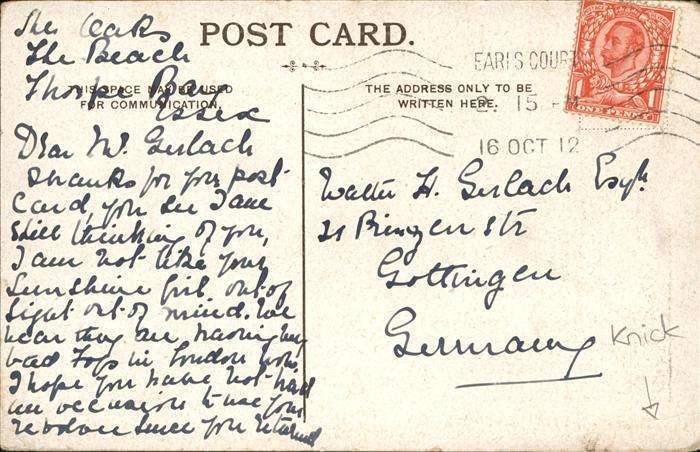 The Oaks
The Beach
Thorpe Bay
Essex
POST CARD.
THIS SPACE MAY BE USED
FOR COMMUNICATION.
THE ADDRESS ONLY TO BE
WRITTEN HERE.
EARLS COURT
2. 15 - M
16 OCT 12
ONE PENNY
Dear Mr. Gerlach
Thanks for your post
card, you see I am
still thinking of you,
I am not like your
Sunshine Girl out of
sight out of mind. We
hear they are having very
bad Fogs in London now
I hope you have not had
an occasion to use your
revolver since you returned
Walter H. Gerlach Esqr
21 Str
Gottingen
Germany
Knick